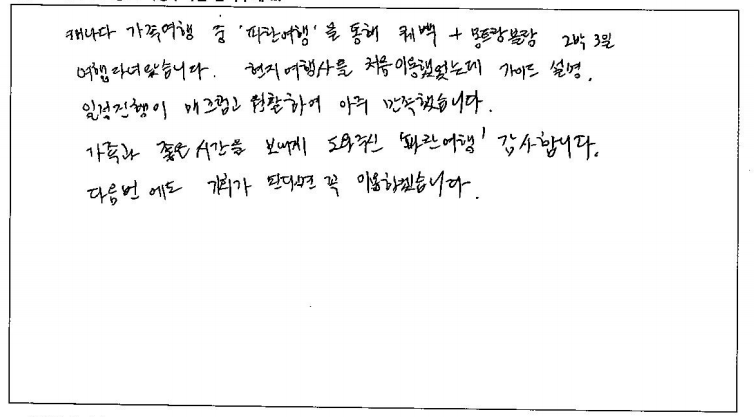 캐나다 가족여행 중 '파란여행'을 통해 퀘벡 + 몽트랑블랑 2박 3일
여행다녀왔습니다. 현지여행사를 처음이용했었는데 가이드 설명,
일정진행이 매끄럽고 원활하여 아주 만족했습니다.
가족과 좋은시간을 보내게 도와주신 '파란여행' 감사합니다.
다음번 에도 기회가 된다면 꼭 이용하겠습니다.